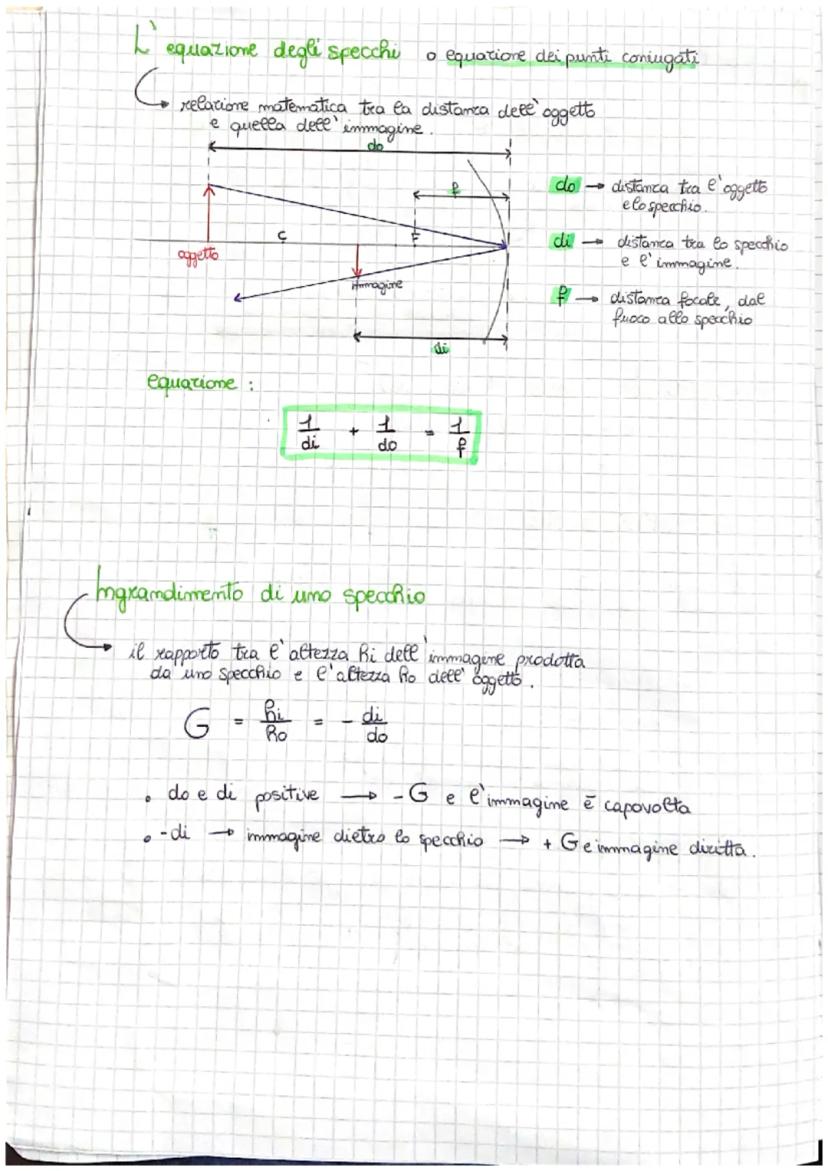 L'equazione degli specchi o equazione dei punti coniugati
relazione matematica tra la distanza dell'oggetto
e quella dell'immagine.
do
f
C
F
oggetto
immagine
di
do → distanza tra l'oggetto
e lo specchio.
di → distanza tra lo specchio
e l'immagine.
f → distanza focale, dal
fuoco allo specchio
equazione :
1/di + 1/do = 1/f
Ingrandimento di uno specchio
il rapporto tra l'altezza hi dell'immagine prodotta
da uno specchio e l'altezza ho dell'oggetto.
G = hi/ho = - di/do
• do e di positive → -G e l'immagine è capovolta
• -di → immagine dietro lo specchio → + G e immagine diritta.